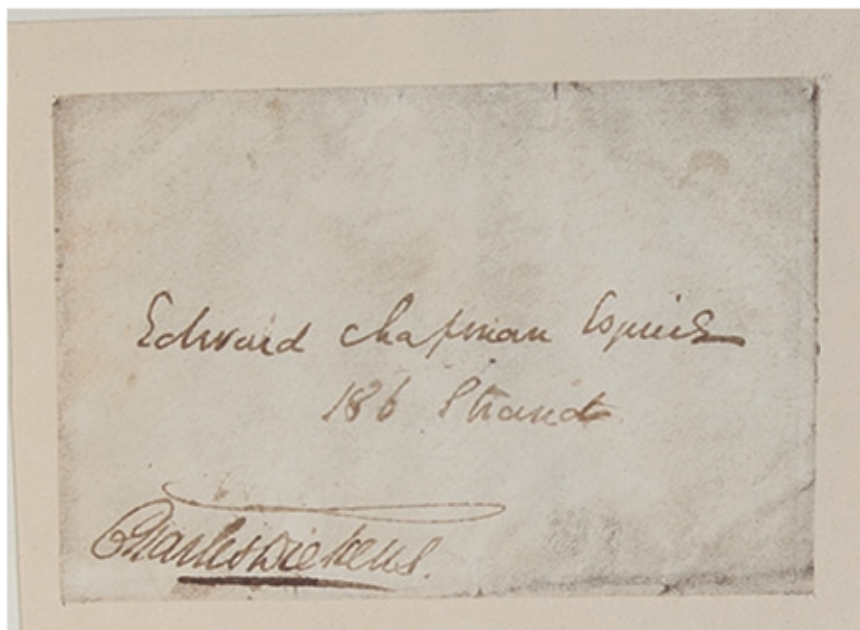 Edward Chapman Esquire
186 Strand
Charles Dickens.